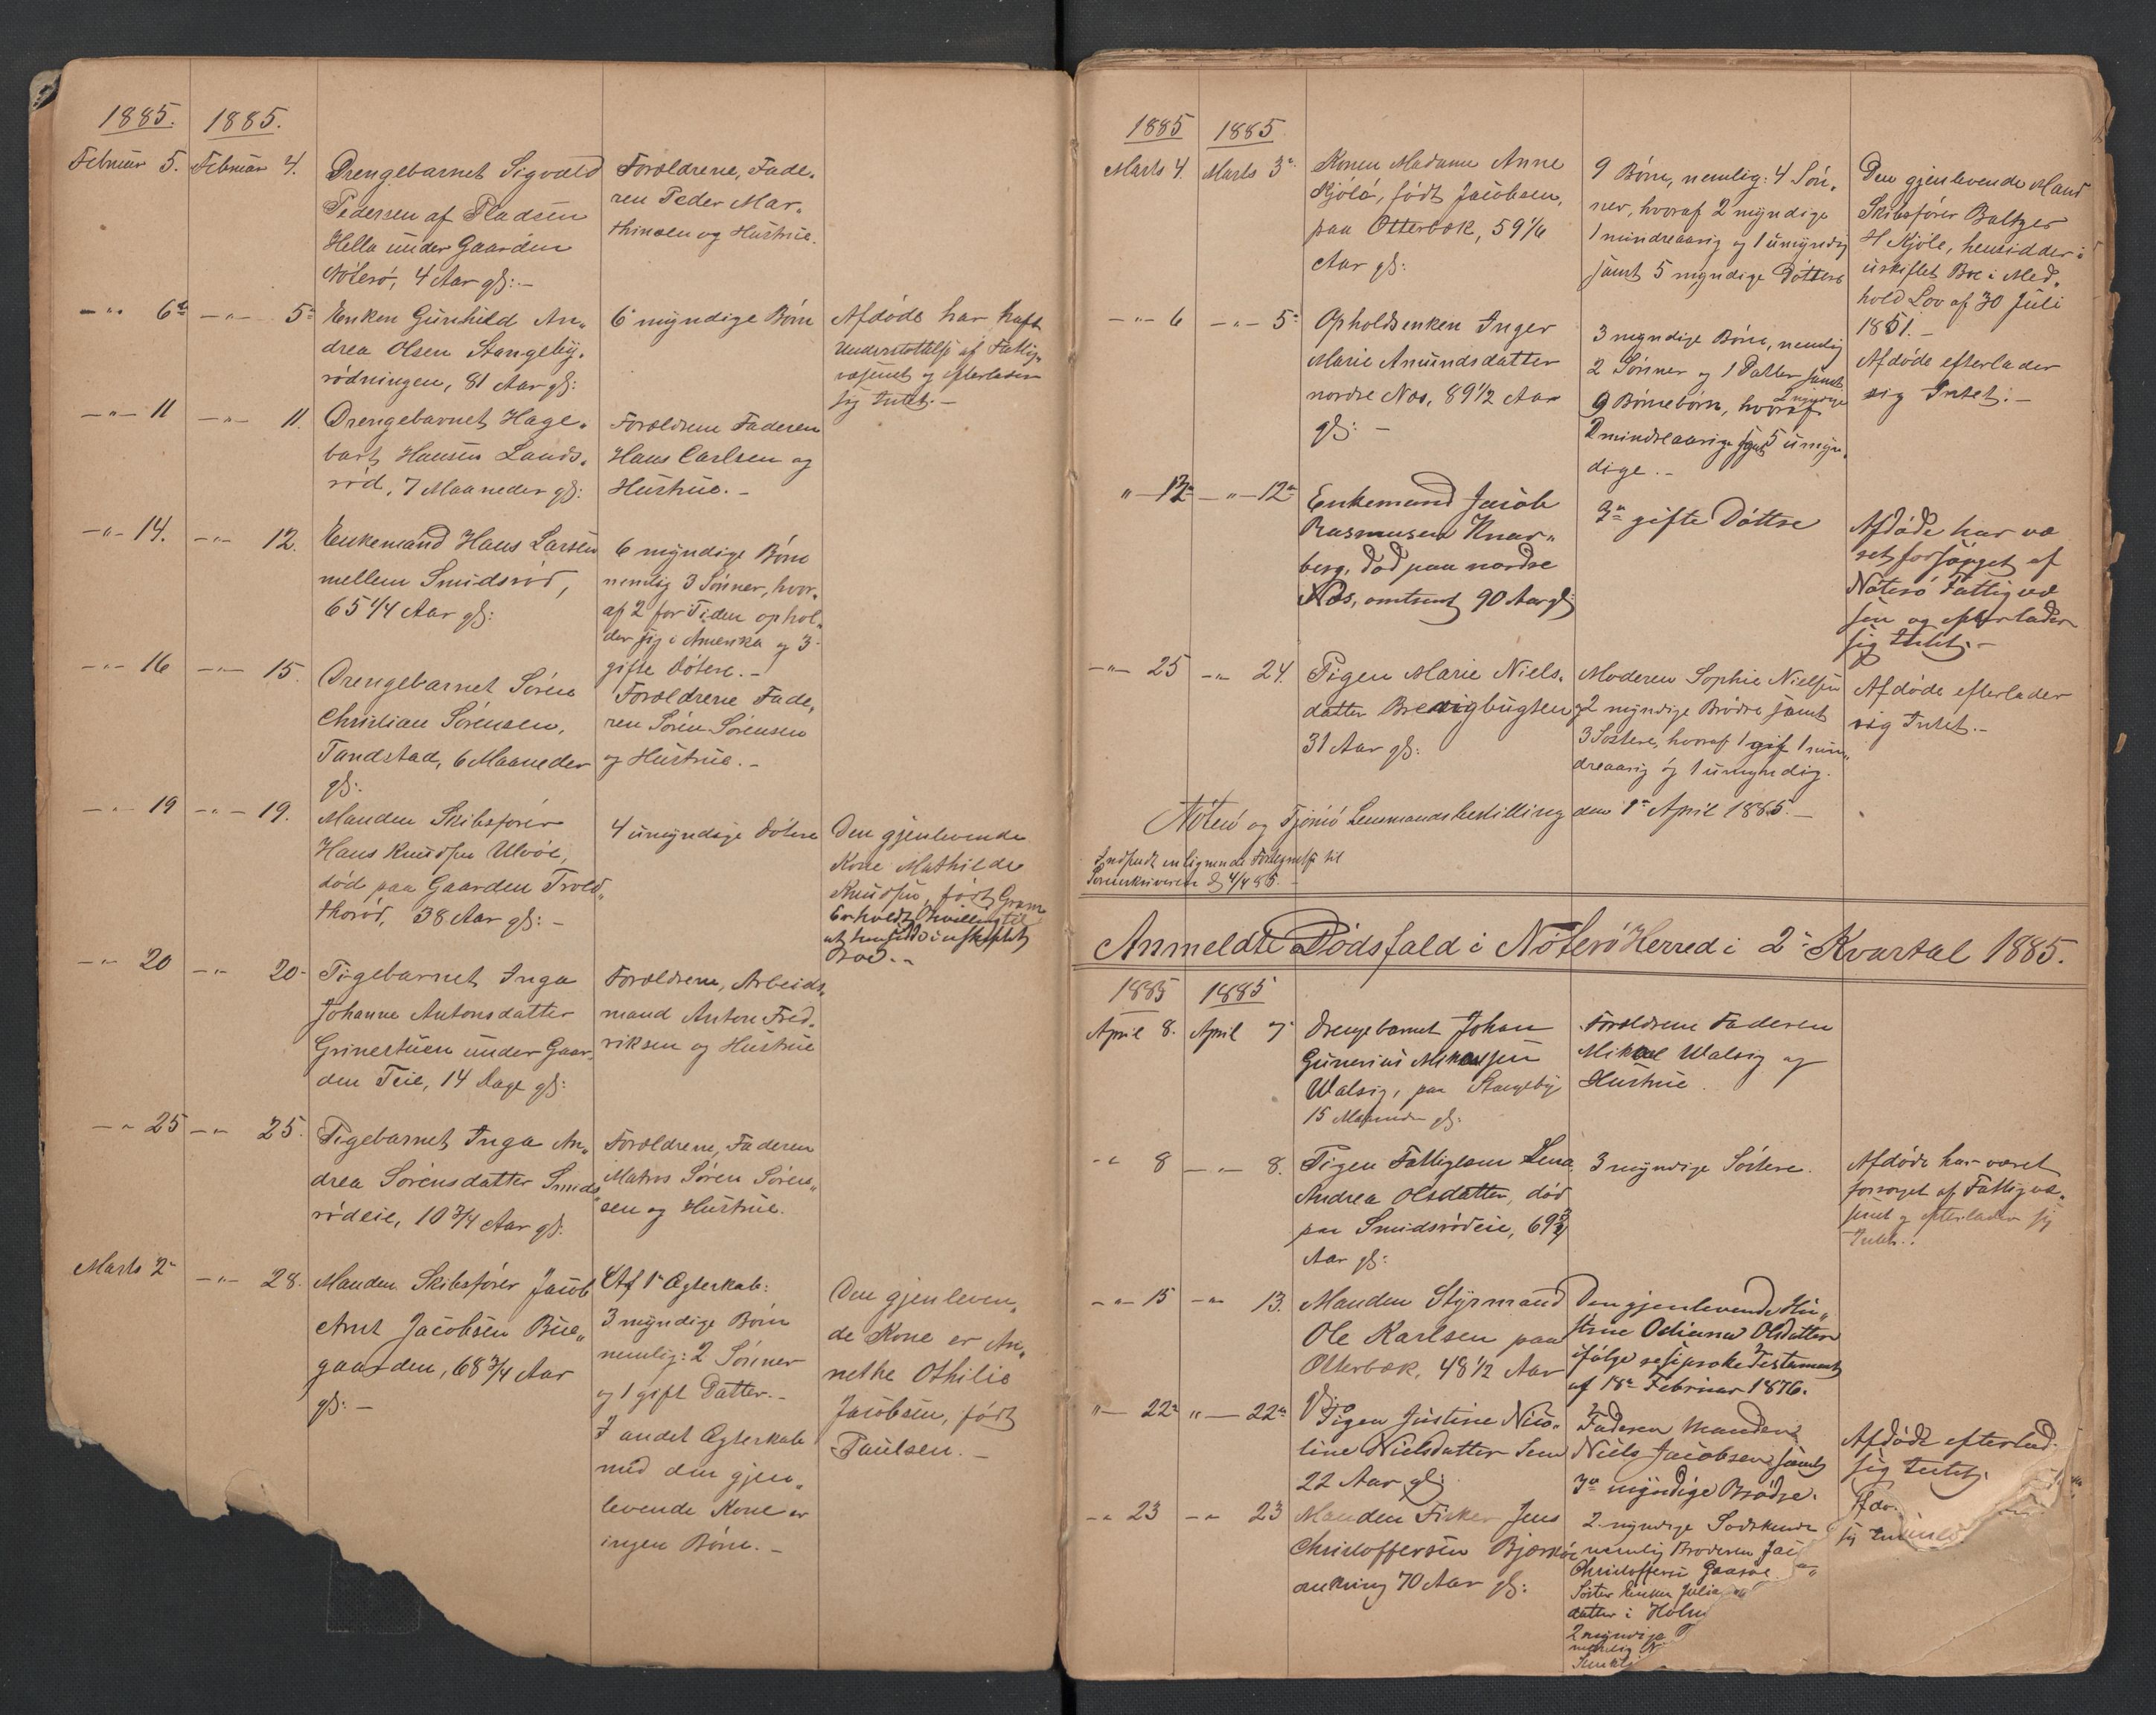 1885. 1885.
Februar 5. Februar 4.
Drengebarnet Sigvald
Pedersen af Pladsen
Hella under Gaarden
Nøterø, 4 Aar gl:-
Forældrene, Fade-
ren Peder Mar-
thinsen og Hustrue.
-"- 6te -"- 5te
Enken Gunhild An-
drea Olsen Stangeby-
rødningen, 81 Aar gl:
6 myndige Børn
Afdøde har haft
Understøttelse af Fattig-
væsenet og efterlader
sig Intet.-
-"- 11 -"- 11.
Drengebarnet Hage-
bart Hansen Lands-
rød, 7 Maaneder gl:
Forældrene Faderen
Hans Carlsen og
Hustrue.-
-"- 14. -"- 12.
Enkemand Hans Larsen
mellem Smidsrød,
65 1/4 Aar gl:
6 myndige Børn
nemlig 3 Sønner, hvor-
af 2 for Tiden ophol-
der sig i Amerika og 3
gifte Døtere.-
-"- 16 -"- 15.
Drengebarnet Søren
Christian Sørensen,
Tandstad, 6 Maaneder
gl:
Forældrene Fade-
ren Søren Sørensen
og Hustrue.-
-"- 19 -"- 19.
Manden Skibsfører
Hans Knudsen Ulvøe,
død paa Gaarden Trold-
thorød, 38 Aar gl:-
4 umyndige Døtere
Den gjenlevende
Kone Mathilde
Knudsen, født Gram
erholdt Bevilling til
at hensidde i uskiftet
Boe.-
-"- 20 -"- 20.
Pigebarnet Inga
Johanne Antonsdatter
Grinerstuen under Gaar-
den Teie, 14 Dage gl:
Forældrene, Arbeids-
mand Anton Fred-
riksen og Hustrue
-"- 25 -"- 25.
Pigebarnet Inga An-
drea Sørensdatter Smids-
rødeie, 10 3/4 Aar gl.
Forældrene, Faderen
Matros Søren Søren-
sen og Hustrue.
Marts 2 -"- 28.
Manden Skibsfører Jacob
Arnt Jacobsen Bue-
gaarden, 68 3/4 Aar
gl:-
Af 1te Ægteskab:
3 myndige Børn
nemlig: 2 Sønner
og 1 gift Datter.-
I andet Ægteskab
med den gjen-
levende Kone er
ingen Børn.-
Den gjenleven-
de Kone er An-
nethe Othilie
Jacobsen, født
Paulsen.-
1885 1885
Marts 4. Marts 3.
Konen Madame Anne
Kjølø, født Jacobsen,
paa Otterbæk, 59 1/6
Aar gl:
9 Børn, nemlig: 4 Søn-
ner, hvoraf 2 myndige
1 mindreaarig og 1 umyndig
samt 5 myndige Døttere
Den gjenlevende Mand
Skibsfører Baltzer
H Kjøle, hensidder i
uskiftet Boe i Med-
hold Lov af 30 Juli
1851.-
-"- 6 -"- 5
Opholdsenken Inger
Marie Amundsdatter
nordre Næs, 89 1/2 Aar
gl:-
3 myndige Børn, nemlig
2 Sønner og 1 Datter samt
9 Børnebørn, hvoraf 2 myndige
2 mindreaarige samt 5 umyn-
dige.-
Afdøde efterlader
sig Intet.-
"- 12 -"- 12te
Enkemand Jacob
Rasmusen Knar-
berg, død paa nordre
Næs, omtrent 90 Aar gl:
3 gifte Døttre
Afdøde har væ
ret forsørget af
Nøterø Fattigvæ
sen og efterlader
sig Intet.-
-"- 25 -"- 24.
Pigen Marie Niels-
datter Brevigbugten
31 Aar gl:
Moderen Sophie Nielsen
og 2 myndige Brødre samt
3 Søstere, hvoraf 1 gift 1 min-
dreaarig og 1 umyndig.
Afdøde efterlader
sig Intet.-
Nøterø og Tjømø Lensmandsbestilling den 1te April 1885.-
Indsendt enlignende Fortegnelse til
Sorenskriveren d. 4/4 85.-
Anmeldte Dødsfald i Nøterø Herred i 2 Kvartal 1885.
1885 1885
April 8. April 7.
Drengebarnet Johan
Gunerius Mikaelsen
Walsig, paa Stangeby
15 Maaneder gl.
Forældrene Faderen
Mikael Walsig og
Hustrue.
-"- 8 -"- 8.
Pigen Fattiglem Lena
Andrea Olsdatter, død
paa Smidsrødeie, 69 3/4
Aar gl:
3 myndige Søstere.
Afdøde har været
forsørget af Fattigvæ-
senet og efterlader sig
Intet.
-"- 15 -"- 13.
Manden Styrmand
Ole Karlsen paa
Otterbæk, 48 1/2 Aar
gl:
Den gjenlevende Hu-
strue Odiana Olsdatter
ifølge resiproke Testament
af 18 Februar 1876.
"- 22 "- 22
Pigen Justine Nico-
line Nielsdatter Sem
22 Aar gl:
Faderen Manden
Niels Jacobsen samt
3 myndige Brødre.
Afdøde efterlad-
sig Intet.
-"- 23 -"- 23
Manden Fisker Jens
Christoffersen Bjørnø
70 Aar gl:
2 myndige Sødskende
nemlig Broderen
Christoffersen
Søster Enken
datter i Holm
2 myndige
nemlig